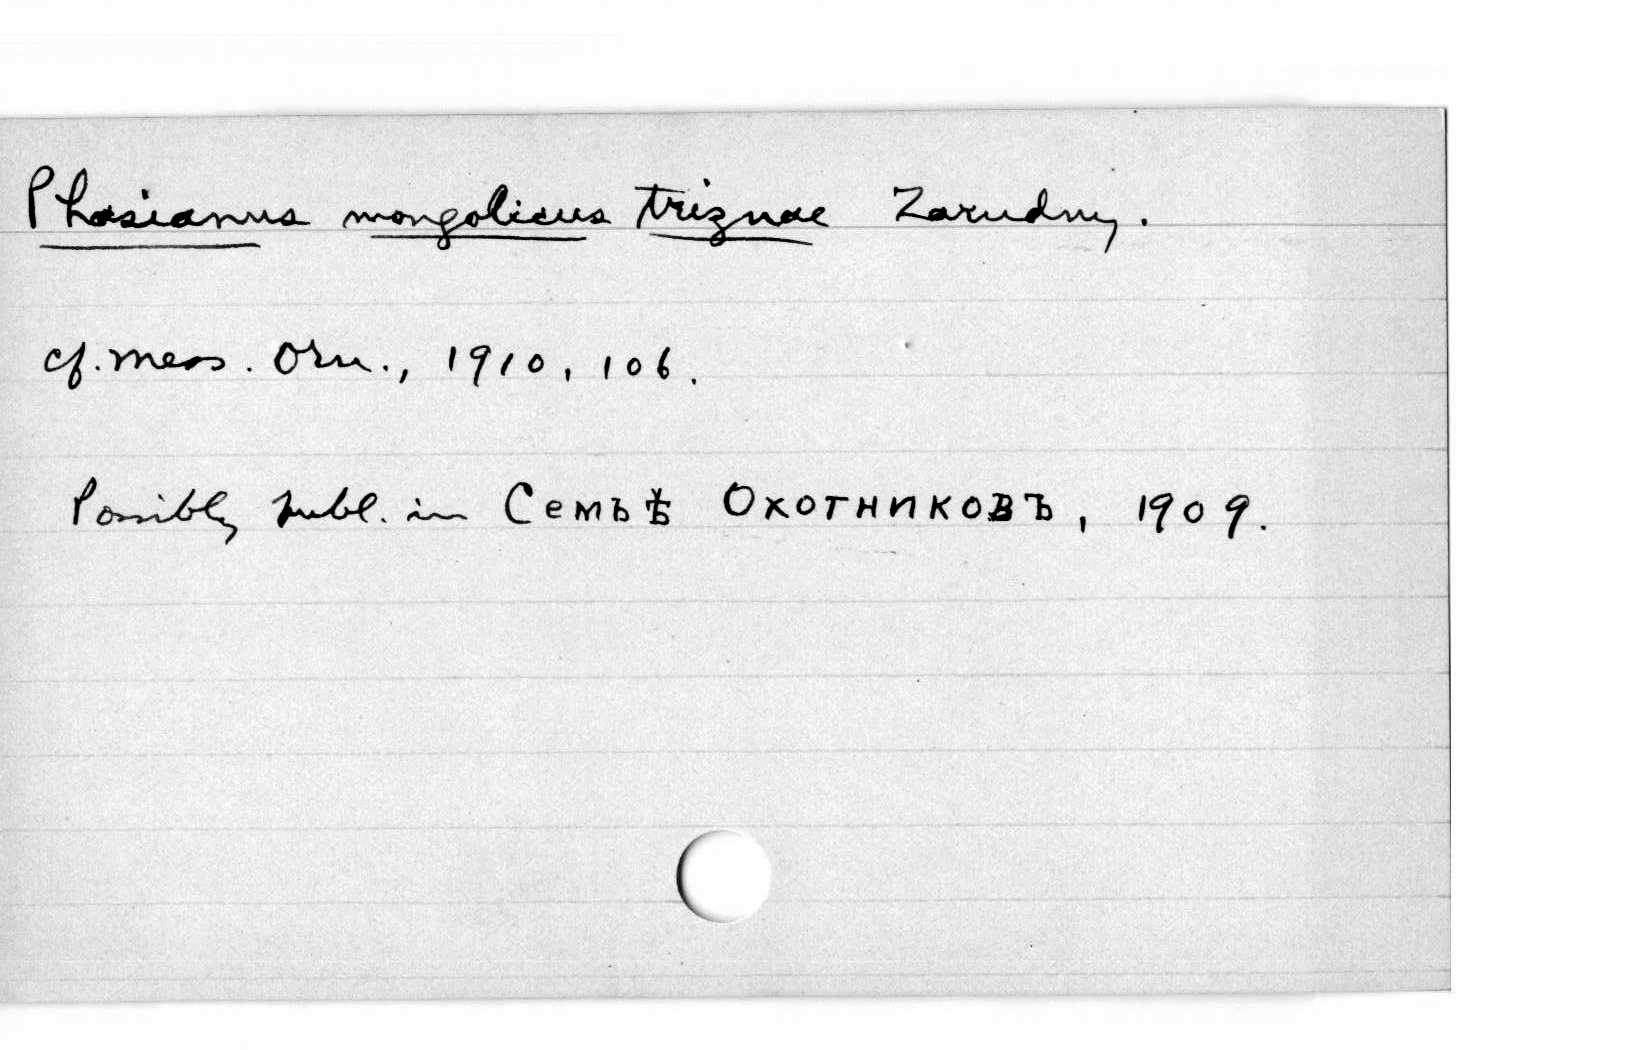 Phasianus mongolicus triznae Zarudny.
cf. Mess. Orn., 1910, 106.
Possibly publ. in Семьѣ Охотниковъ, 1909.